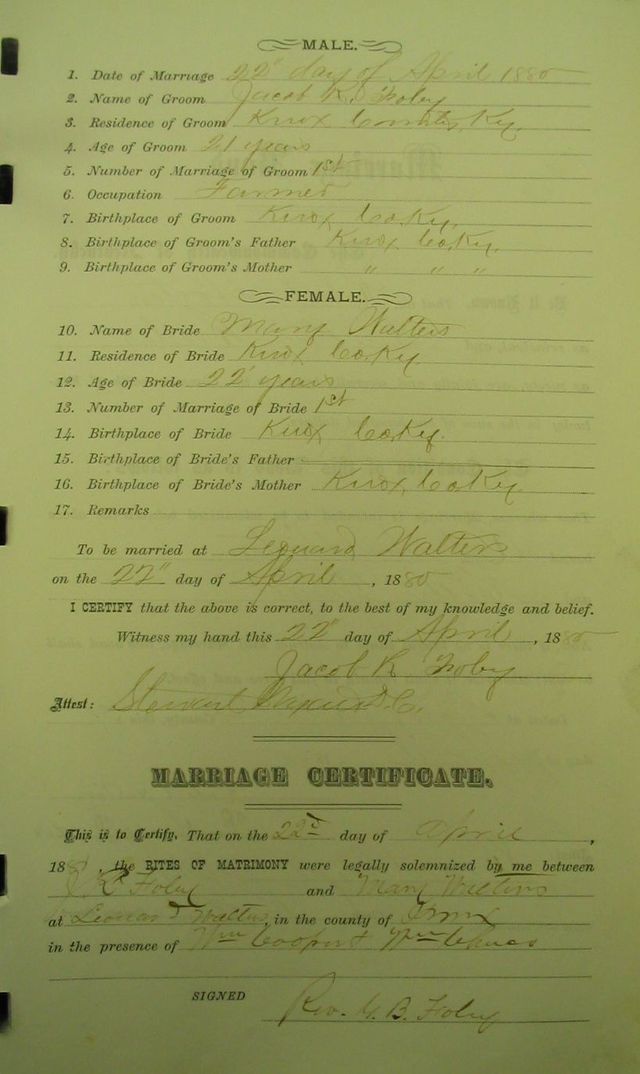 MALE.
1. Date of Marriage 22" day of April 1880
2. Name of Groom Jacob K. Foley
3. Residence of Groom Knox County Ky.
4. Age of Groom 21 years
5. Number of Marriage of Groom 1st
6. Occupation Farmer
7. Birthplace of Groom Knox Co Ky.
8. Birthplace of Groom's Father Knox Co. Ky.
9. Birthplace of Groom's Mother " " "
FEMALE.
10. Name of Bride Mary Walters
11. Residence of Bride Knox Co Ky
12. Age of Bride 22 years
13. Number of Marriage of Bride 1st
14. Birthplace of Bride Knox Co. Ky.
15. Birthplace of Bride's Father
16. Birthplace of Bride's Mother Knox Co Ky
17. Remarks
To be married at Leonard Walters
on the 22" day of April, 1880
I CERTIFY that the above is correct, to the best of my knowledge and belief.
Witness my hand this 22" day of April, 1880
Jacob K Foley
Attest: Stewart D.C.
MARRIAGE CERTIFICATE.
This is to Certify, That on the 22d day of April,
188, the RITES OF MATRIMONY were legally solemnized by me between
J K Foley and Mary Walters
at Leonard Walters, in the county of Knox
in the presence of Wm Cooper & Wm
SIGNED
Rev. G. B. Foley